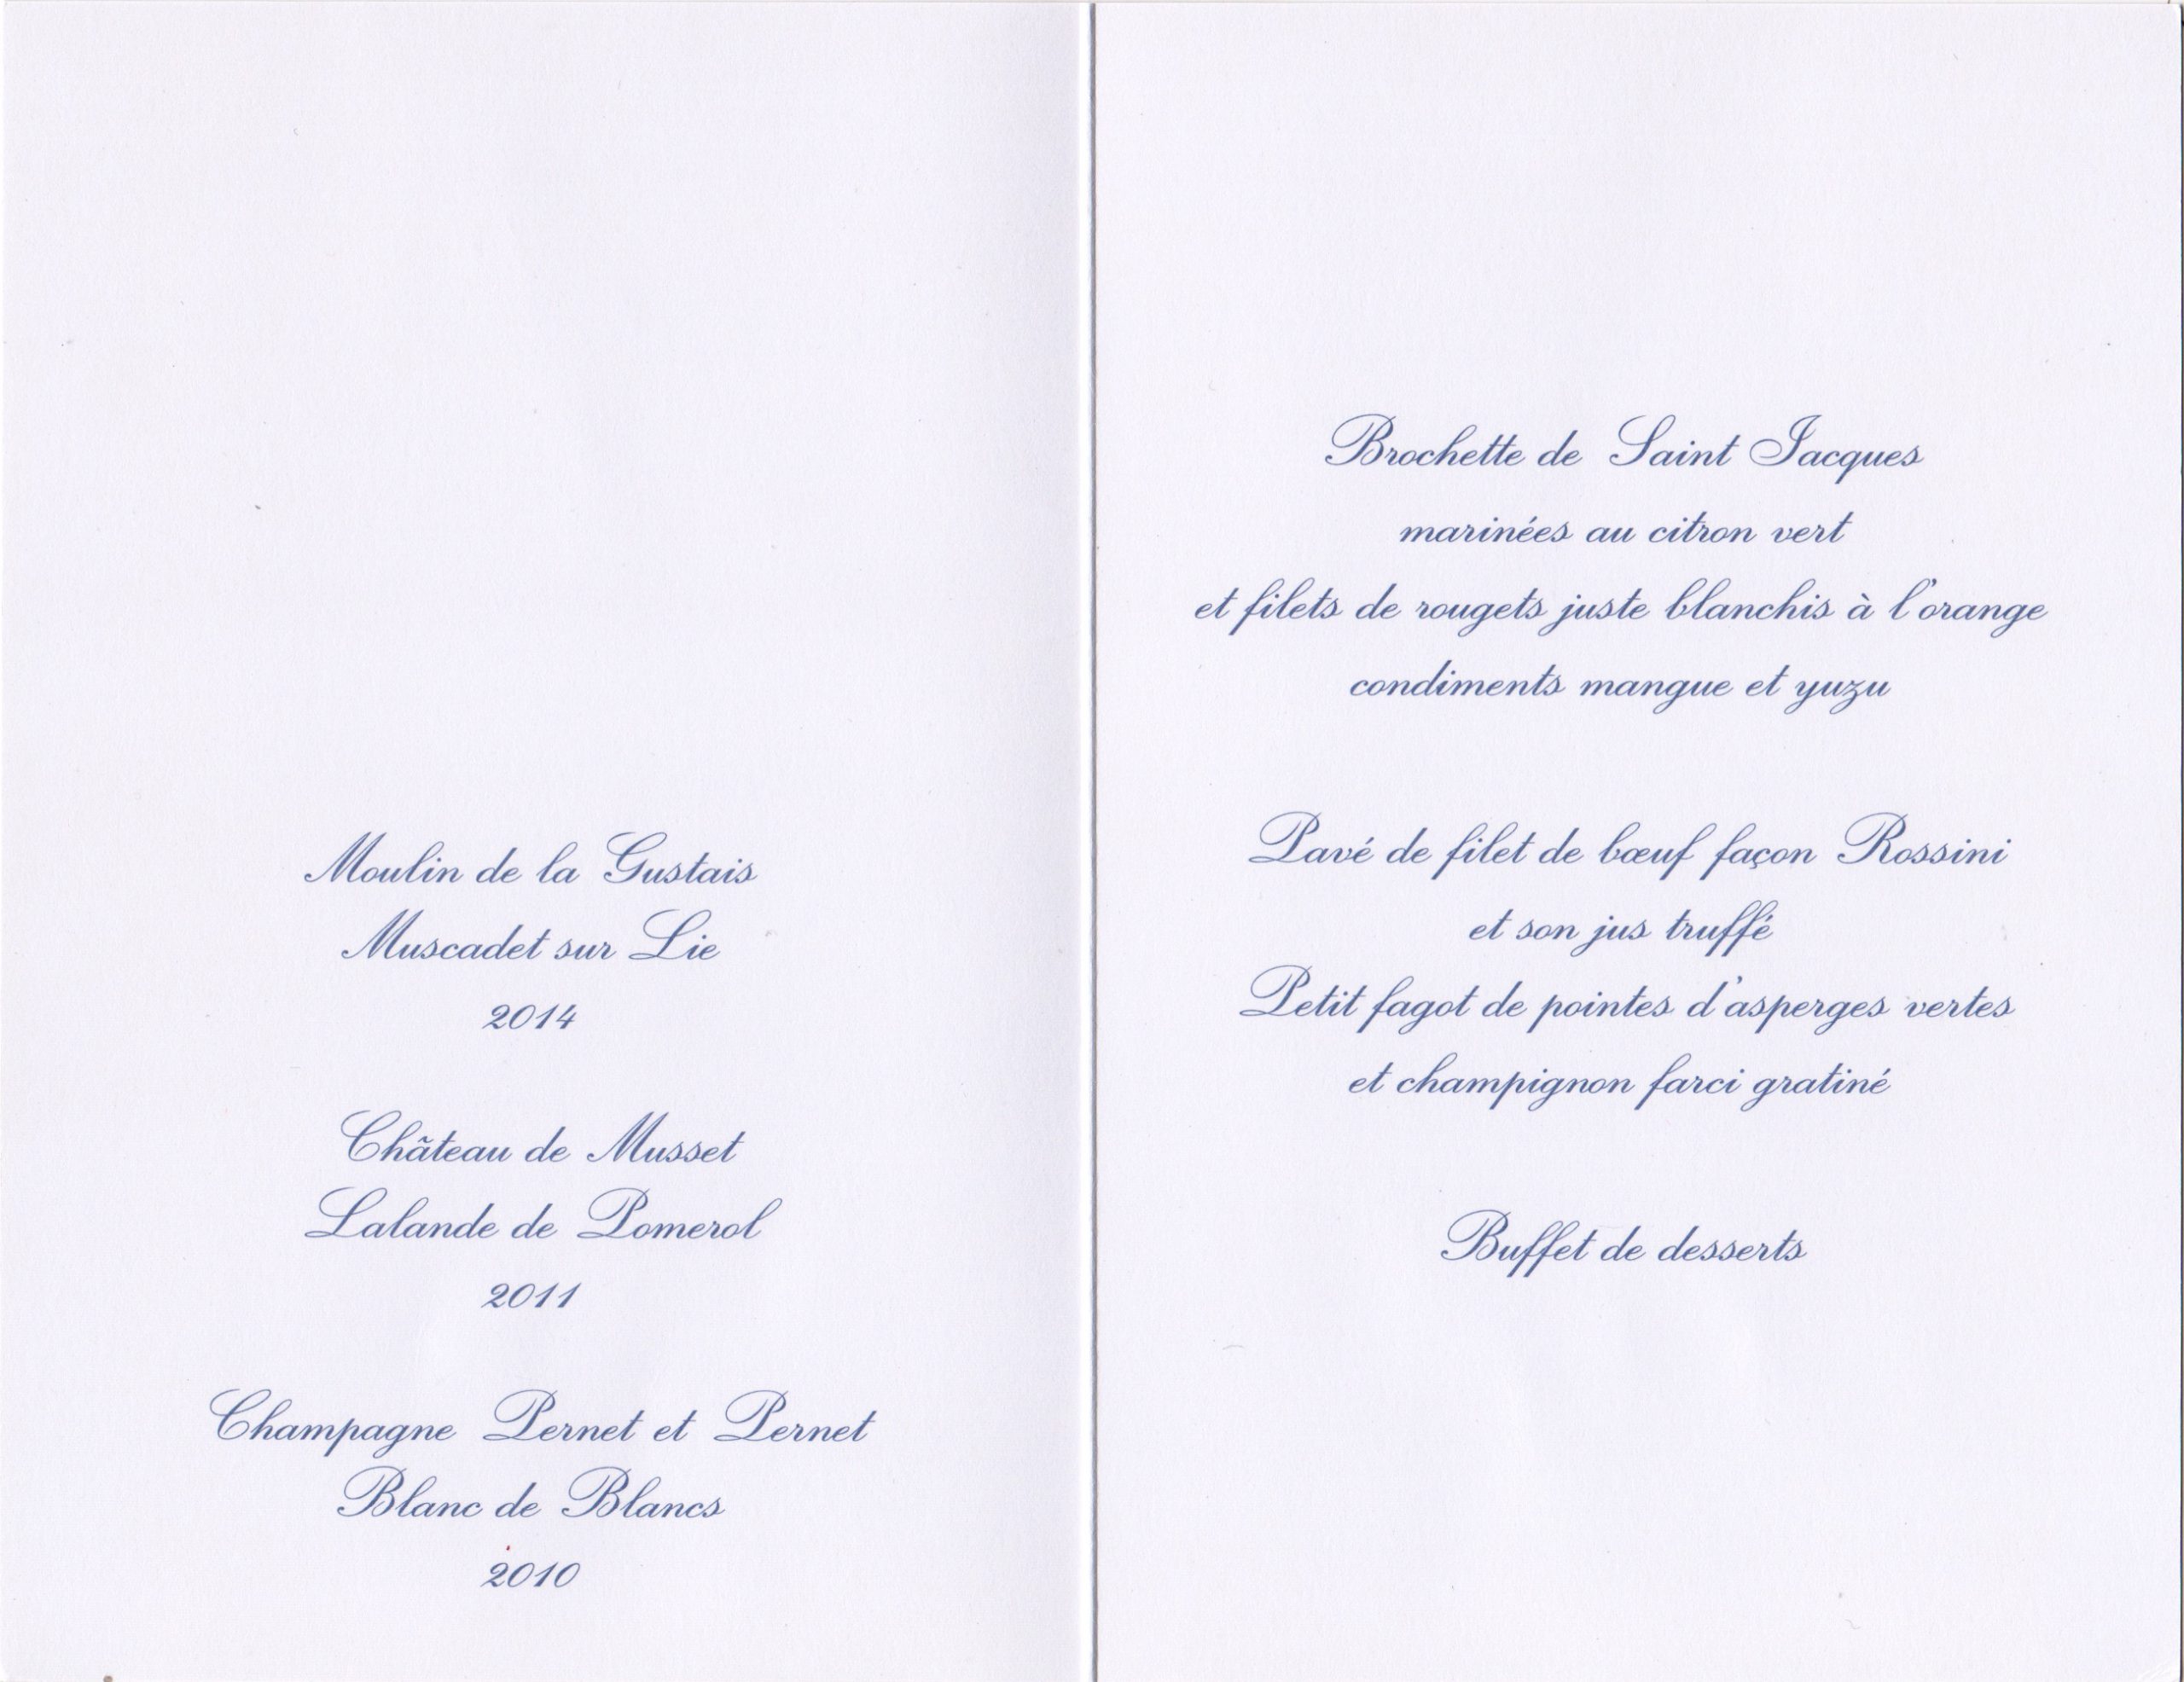 Moulin de la Gustais
Muscadet sur Lie
2014
Chãteau de Musset
Lalande de Pomerol
2011
Champagne Pernet et Pernet
Blanc de Blancs
2010
Brochette de Saint Jacques
marinées au citron vert
et filets de rougets juste blanchis à l'orange
condiments mangue et yuzu
Pavé de filet de bœuf façon Rossini
et son jus truffé
Petit fagot de pointes d'asperges vertes
et champignon farci gratiné
Buffet de desserts